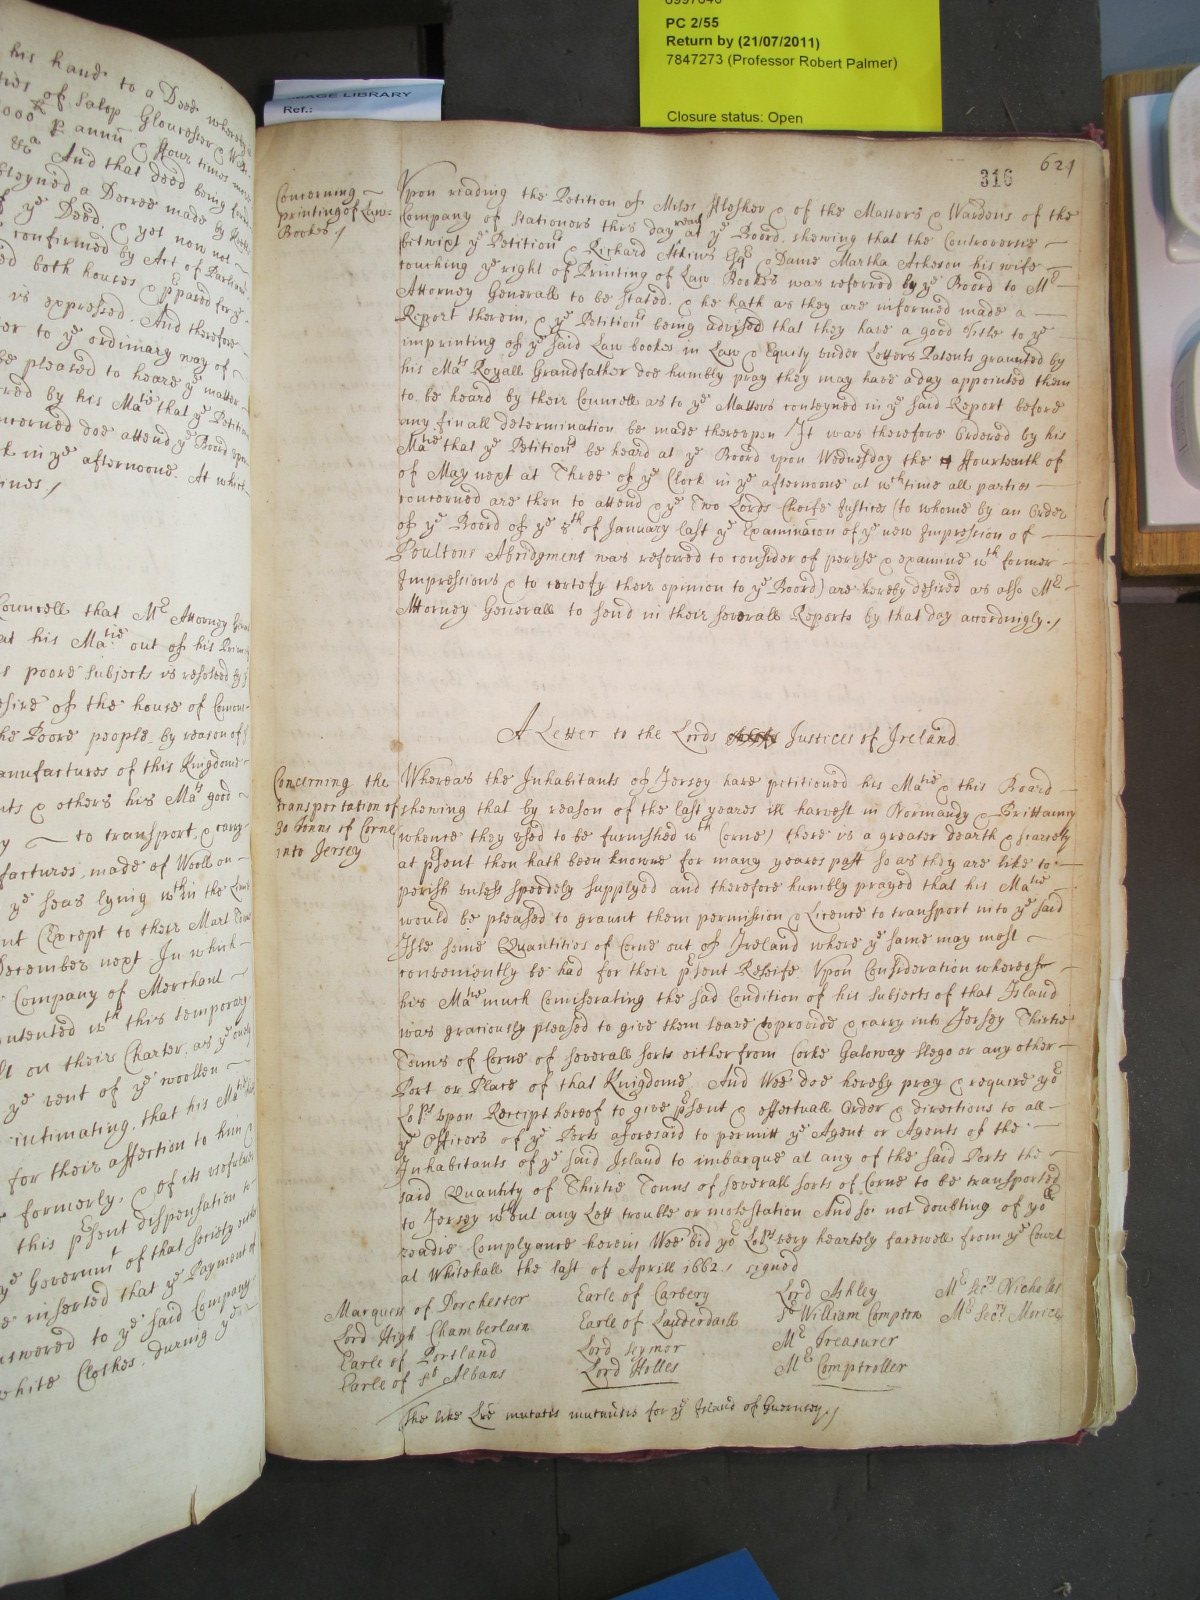 PC 2/55
Return by (21/07/2011)
7847273 (Professor Robert Palmer)
Closure status: Open
IMAGE LIBRARY
Ref.:
his hand to a Deed
of Salop Gloucester &
annũ & ffour times
And that deed being
a Decree made by
ye Deed, & yet now not
confirmed by Act of
both houses
is expressed. And therefore
to ye ordinary way of
pleased to heare ye matter
by his Matie that ye
doe attend ye Board
in ye afternoone. At
Councell that Mr Attorney
his Matie out of his
poore subjects is resolved by
of the house of
Poore people by reason of
of this Kingdome
& others his Mats good
to transport, & carry
made of Wooll
ye seas lying wthin the
(Except to their Mart
December next. In
Company of Merchant
wth this temporary
on their Charter, as ye
ye vent of ye woollen
intimating, that his Matie
for their affection to him
formerly, & of its
this pʳsent dispensation
ye Governmt of that Society
inserted that ye Payment
to ye said Company
white Clothes, during ye
316
621
Concerning
printing of Law=
Bookes /
Vpon reading the Petition of Miles fflesher & of the Masters & Wardens of the
Company of Stationers this day read at ye Board, shewing that the Controversie
betwixt ye Petitionrs & Richard Atkins Esqr & Dame Martha Acheson his wife
touching ye right of Printing of Law Bookes was referred by ye Board to Mr
Attorney Generall to be stated, & he hath as they are informed made a
Report therein, & ye Petitionrs being advised that they have a good title to ye
imprinting of ye said Law bookes in Law & Equity under Letters Patents graunted by
his Mats Royall Grandfather doe humbly pray they may have a day appointed them
to be heard by their Councell as to ye Matters conteyned in ye said Report before
any finall determination be made thereupon / It was therefore Ordered by his
Matie that ye Petitionrs be heard at ye Board upon Wednesday the ffourteenth of
of May next at Three of ye Clock in ye afternoone at wch time all parties
concerned are then to attend & ye Two Lords Cheife Justices (to whome by an Order
of ye Board of ye 8th of January last ye Examinacon of ye new Impression of
Poultons Abridgment was referred to consider of peruse & examine wth former
Impressions & to certefy their opinion to ye Board) are hereby desired as also Mr
Attorney Generall to send in their severall Reports by that day accordingly. /
A Letter to the Lords Justices of Ireland
Concerning the
transportation of
30 tonns of Corne
into Jersey
Whereas the Inhabitants of Jersey have petitioned his Matie & this Board
shewing that by reason of the last yeares ill harvest in Normandy & Brittainy
(whence they used to be furnished wth Corne) there is a greater dearth & scarcity
at pʳsent then hath been knowne for many yeares past so as they are like to
perish unless speedely supplyed and therefore humbly prayed that his Matie
would be pleased to graunt them permission & Licence to transport into ye said
Isle some Quantities of Corne out of Ireland where ye same may most
conveniently be had for their pʳsent Releife. Vpon Consideration whereof
his Matie much Comiserating the sad Condition of his Subjects of that Island
was graciously pleased to give them leave to provide & carry into Jersey Thirtie
Tonns of Corne of severall sorts either from Corke Galoway Slego or any other
Port or Place of that Kingdome And Wee doe hereby pray & require yor
Lopps upon Receipt hereof to give pʳsent & effectuall Order & directions to all
ye Officers of ye Ports aforesaid to permitt ye Agent or Agents of the
Inhabitants of ye said Island to imbarque at any of the said Ports the
said Quantity of Thirtie Tonns of severall sorts of Corne to be transported
to Jersey wthout any Lett trouble or molestation And so not doubting of yor
readie Complyance herein Wee bid yor Lopps very heartely farewell from ye Court
at Whitehall the last of Aprill 1662. / signed
Marquess of Dorchester Earle of Carbery Lord Ashley Mr Secry Nicholas
Lord High Chamberlain Earle of Lauderdaile Sr William Compton Mr Secry Morice
Earle of Portland Lord Seymor Mr Treasurer
Earle of St Albans Lord Holles Mr Comptroller
The like Lrẽ mutatis mutandis for ye Island of Guernsey. /